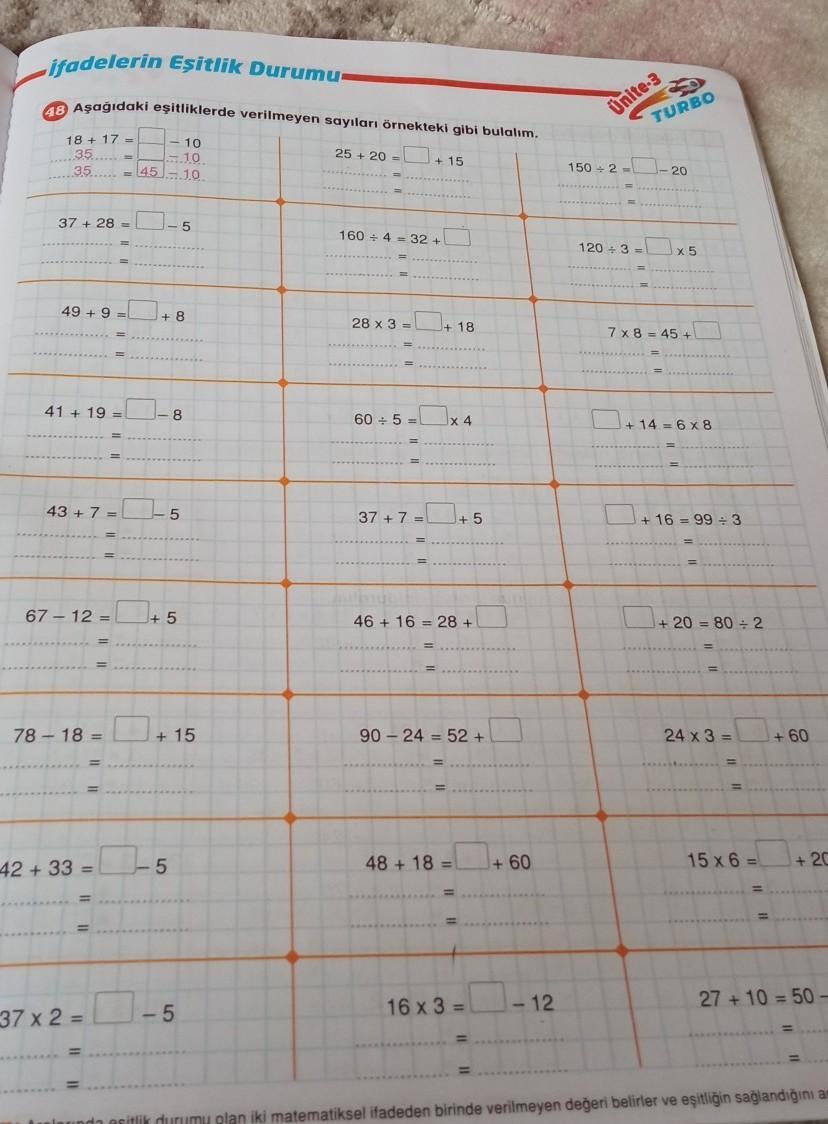 İfadelerin Eşitlik Durumu
Ünite-3
TURBO
48 Aşağıdaki eşitliklerde verilmeyen sayıları örnekteki gibi bulalım.
18 + 17 = □ – 10
35 = □ – 10
35 = 45 – 10
25 + 20 = □ + 15
=
=
150 ÷ 2 = □ – 20
=
=
37 + 28 = □ – 5
=
=
160 ÷ 4 = 32 + □
=
=
120 ÷ 3 = □ x 5
=
=
49 + 9 = □ + 8
=
=
28 x 3 = □ + 18
=
=
7 x 8 = 45 + □
=
=
41 + 19 = □ – 8
=
=
60 ÷ 5 = □ x 4
=
=
□ + 14 = 6 x 8
=
=
43 + 7 = □ – 5
=
=
37 + 7 = □ + 5
=
=
□ + 16 = 99 ÷ 3
=
=
67 – 12 = □ + 5
=
=
46 + 16 = 28 + □
=
=
□ + 20 = 80 ÷ 2
=
=
78 – 18 = □ + 15
=
=
90 – 24 = 52 + □
=
=
24 x 3 = □ + 60
=
=
42 + 33 = □ – 5
=
=
48 + 18 = □ + 60
=
=
15 x 6 = □ + 20
=
=
37 x 2 = □ – 5
=
=
16 x 3 = □ – 12
=
=
27 + 10 = 50 –
=
=
eşitlik durumu olan iki matematiksel ifadeden birinde verilmeyen değeri belirler ve eşitliğin sağlandığını